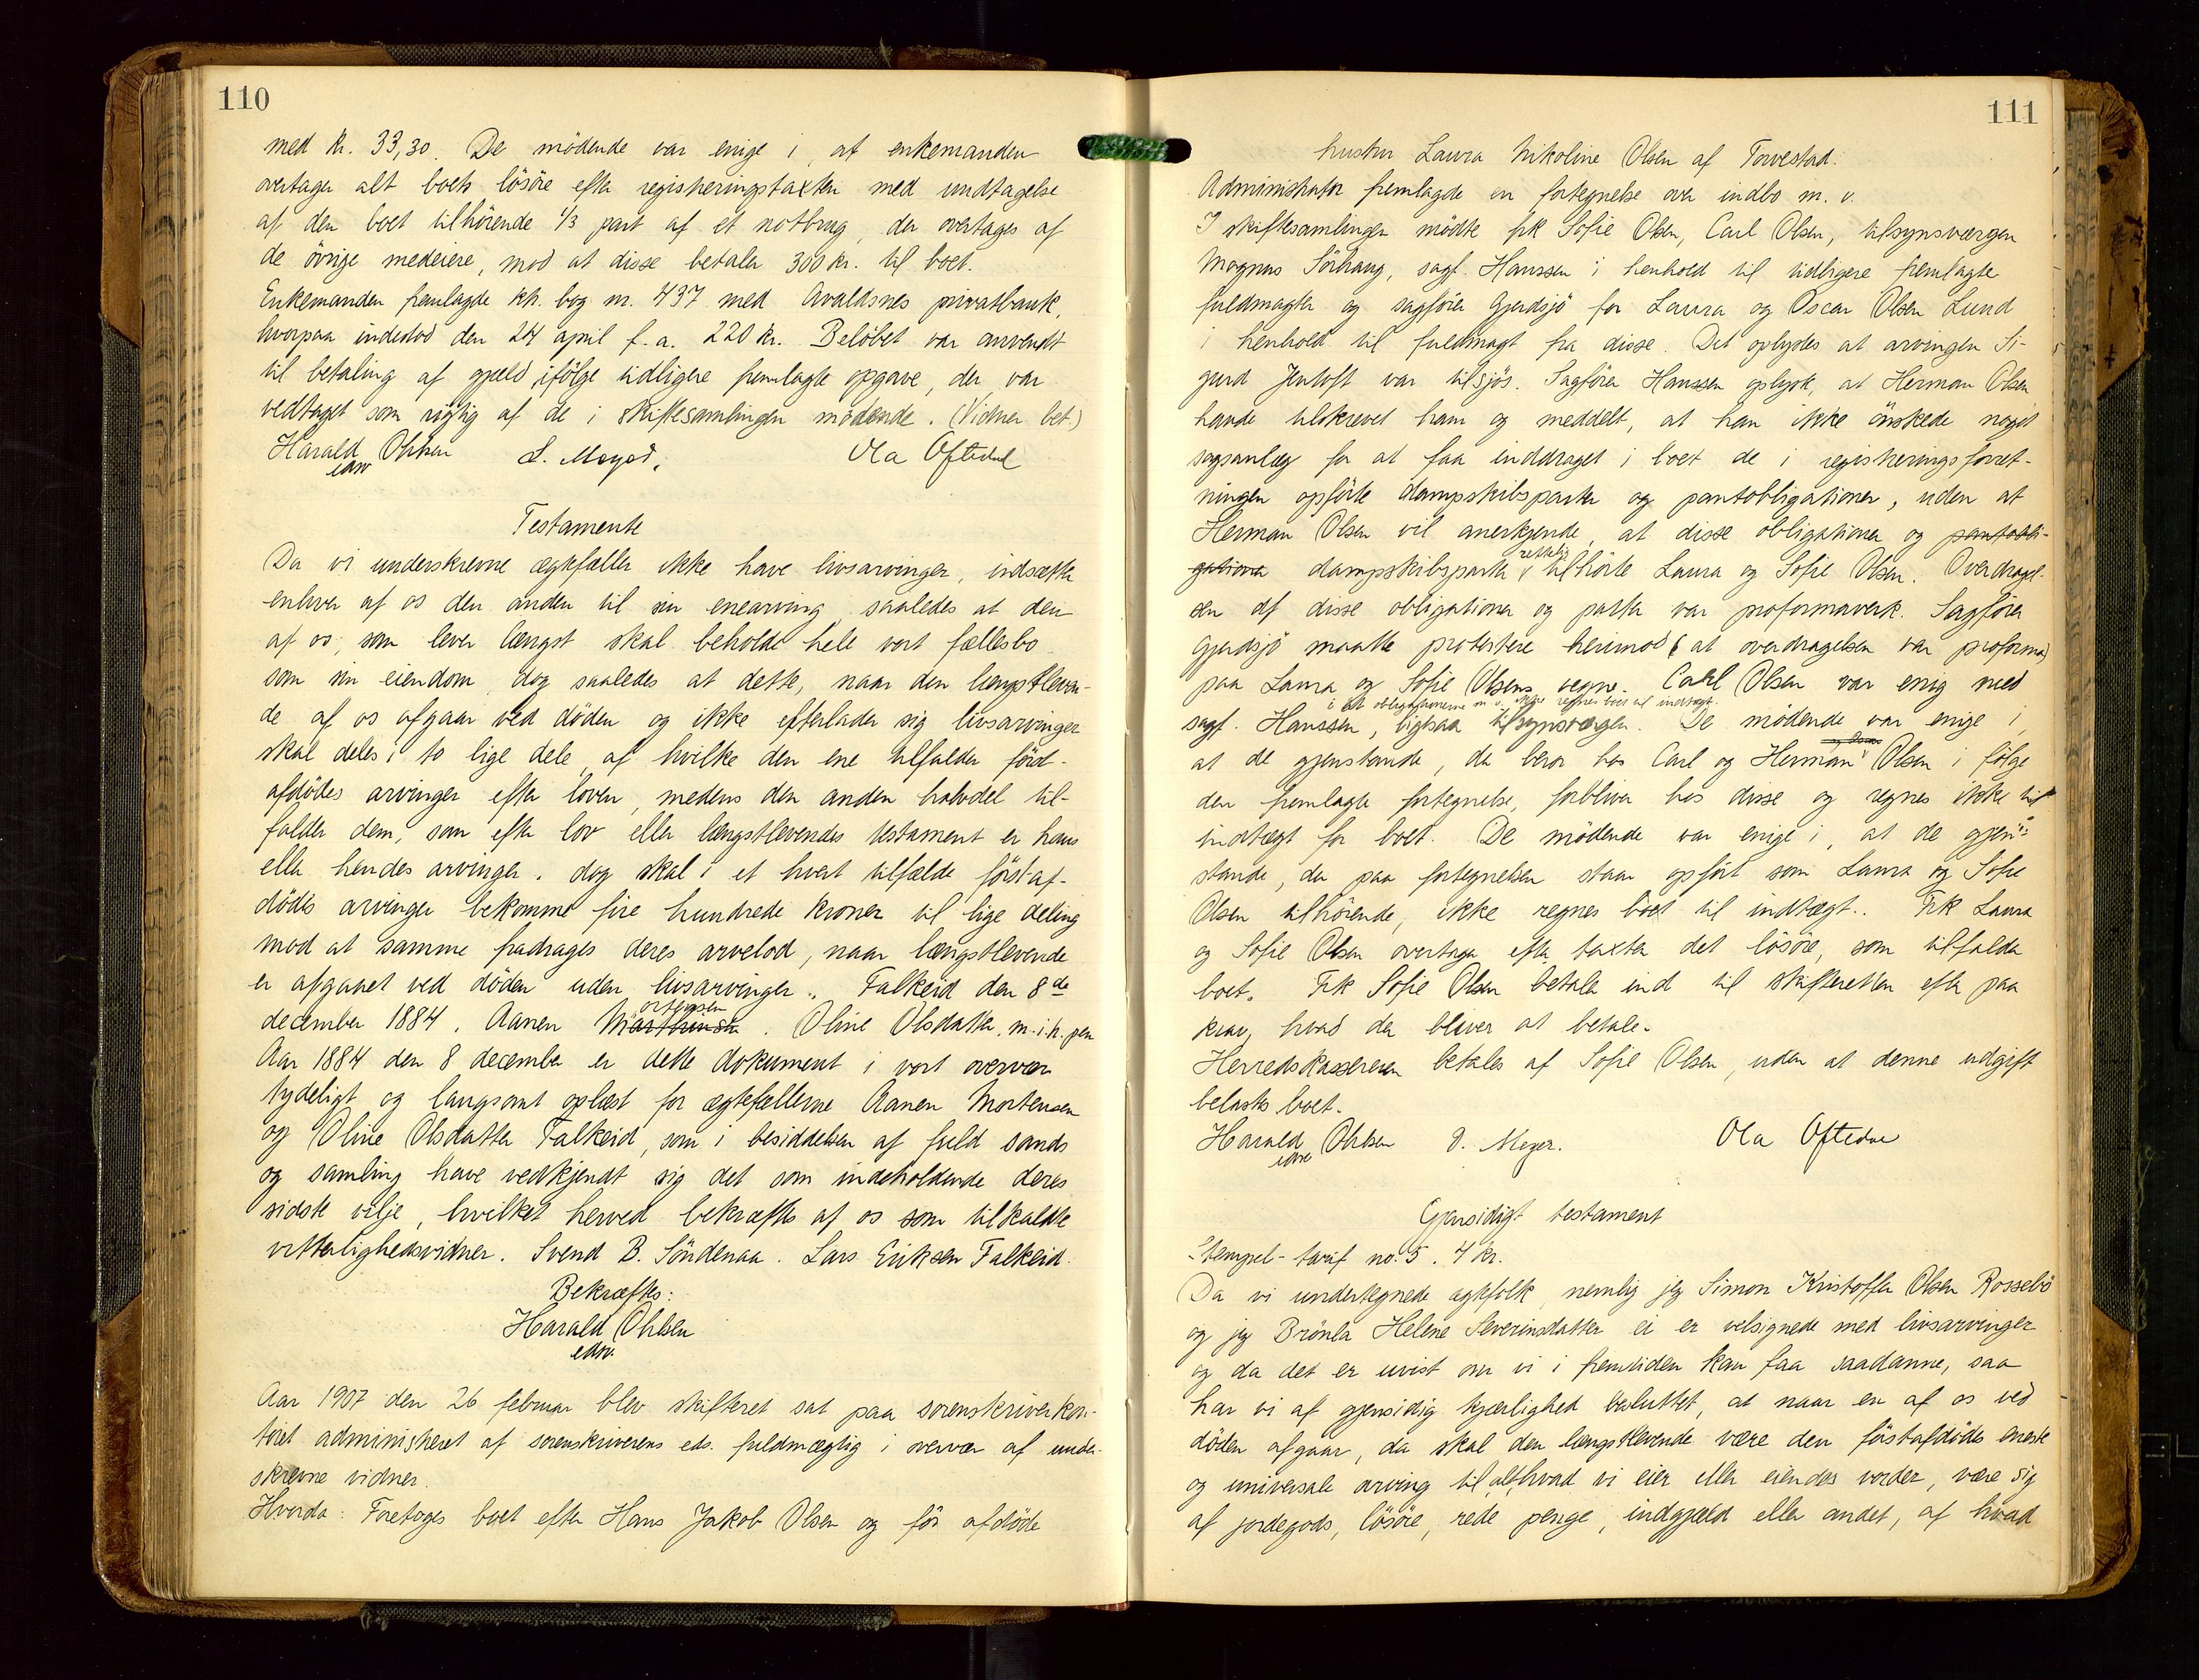 110
med kr. 33,30. De mödende var enige i, at enkemanden
overtager alt boets lösöre efter registreringstaxten med undtagelse
af den boet tilhörende 1/3 part af et notbrug, der overtages af
de övrige medeiere, mod at disse betaler 300 kr. til boet.
Enkemanden fremlagde ktr. bog nr. 437 med Avaldsnes privatbank,
hvorpaa indestod den 24 april f. a. 220 kr. Belöbet var anvendt
til betaling af gjæld ifölge tidligere fremlagte opgave, der var
vedtaget som rigtig af de i skiftesamlingen mödende. (Vidner bet.)
Harald Ohlsen
edsv
Ola Oftedal
Testamente
Da vi underskrevne ægtefæller ikke have livsarvinger, indsætter
enhver af os den anden til sin enearving saaledes at den
af os, som lever længst skal beholde hele vort fællesbo
som sin eiendom, dog saaledes at dette, naar den længstleven-
de af os afgaar ved döden og ikke efterlader sig livsarvinger
skal deles i to lige dele, af hvilke den ene tilfalder först-
afdödes arvinger efter loven, medens den anden halvdel til-
falder dem, som efter lov eller længstlevendes testament er hans
eller hendes arvinger. dog skal i et hvert tilfælde först-af-
dödes arvinger bekomme fire hundrede kroner til lige deling
mod at samme fradrages deres arvelod, naar længstlevende
er afgaaet ved döden uden livsarvinger. Falkeid den 8de
december 1884. Aanen Mortensen. Oline Olsdatter. m. i. h. pen
Aar 1884 den 8 december er dette dokument i vort overvær
tydeligt og langsomt oplæst for ægtefællerne Aanen Mortensen
og Oline Olsdatter Falkeid, som i besiddelsen af fuld sands
og samling have vedkjendt sig det som indeholdende deres
sidste vilje, hvilket herved bekræftes af os som tilkaldte
vitterlighedsvidner. Svend B. Söndenaa. Lars Eriksen Falkeid.
Bekræftes:
Harald Ohlsen
edsv.
Aar 1907 den 26 februar blev skifteret sat paa sorenskriverkon-
toret administreret af sorenskriverens eds. fuldmægtig i overvær af under-
skrevne vidner.
Hvorda: Foretoges boet efter Hans Jakob Olsen og för afdöde
111
hustru Laura Nikoline Olsen af Torvestad.
Administrator fremlagde en fortegnelse over indbo m. v.
I skiftesamlingen mödte frk Sofie Olsen, Carl Olsen, tilsynsværgen
Magnus Sörhaug, sagf. Hanssen i henhold til tidligere fremlagte
fuldmagter og sagförer Gjerdsjö for Laura og Oscar Olsen Lund
i henhold til fuldmagt fra disse. Det oplystes at arvingen Si-
gurd Jentoft var tilsjös. Sagförer Hanssen oplyste, at Herman Olsen
havde tilskrevet ham og meddelt, at han ikke önskede noget
sagsanlæg for at faa inddraget i boet de i registreringsforret-
ningen opförte dampskibsparter og pantobligationer, uden at
Herman Olsen vil anerkjende, at disse obligationer og pantobli-
gationer dampskibsparter rettelig tilhörte Laura og Sofie Olsen. Overdragel-
sen af disse obligationer og parter var proformaverk. Sagförer
Gjerdsjö maatte protestere herimod (at overdragelsen var proforma)
paa Laura og Sofie Olsens vegne. Carl Olsen var enig med
sagf. Hanssen, i at obligationerne m. v. ikke regnes boet til indtægt. ligesaa tilsynsværgen. De mödende var enige i,
at de gjenstande, der beror hos Carl og Herman Olsen i fölge
den fremlagte fortegnelse, forbliver hos disse og regnes ikke til
indtægt for boet. De mödende var enige i, at de gjen-
stande, der paa fortegnelsen staar opfört som Laura og Sofie
Olsen tilhörende, ikke regnes boet til indtægt. Frk Laura
og Sofie Olsen overtager efter taxten det lösöre, som tilfalder
boet. Frk Sofie Olsen betaler ind til skifteretten efter paa
krav, hvad der bliver at betale.
Herredskassereren betales af Sofie Olsen, uden at denne udgift
belastes boet.
Harald Ohlsen
edsv
Ola Oftedal
Gjensidigt testament
Stempel-tarif no. 5. 4 kr.
Da vi undertegnede ægtefolk, nemlig jeg Simon Kristoffer Olsen Rossebö
og jeg Brönla Helene Severinsdatter ei er velsignede med livsarvinger
og da det er uvist om vi i fremtiden kan faa saadanne, saa
har vi af gjensidig kjærlighed besluttet, at naar en af os ved
döden afgaar, da skal den længstlevende være den förstafdödes eneste
og universale arving til alt, hvad vi eier eller eiendes vorder, være sig
af jordegods, lösöre, rede penge, indgjæld eller andet, af hvad